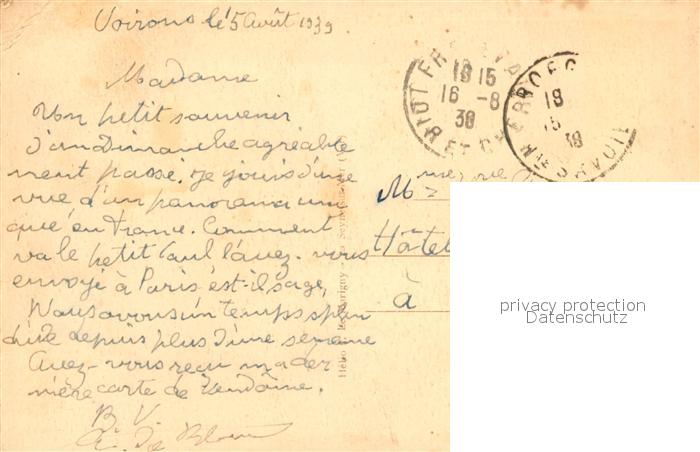 le 15 Août 1939
Madame
Un petit souvenir
d'un Dimanche agréable
ment passé. Je jouis d'une
vue d'un panorama uni
que en France. Comment
va le petit Paul l'avez-vous
envoyé à Paris est-il sage,
Nous avons un temps splen
dide depuis plus d'une semaine
Avez-vous reçu ma der
nière carte de Vendôme.
B. V.
18 15
16 -8
38
IR ET CHER
18
15
38
HTE SAVOIE
Hôtel
à
privacy protection
Datenschutz